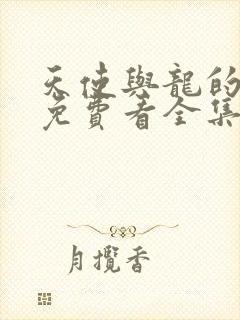 天使與龍的
免費看全集
月攬香